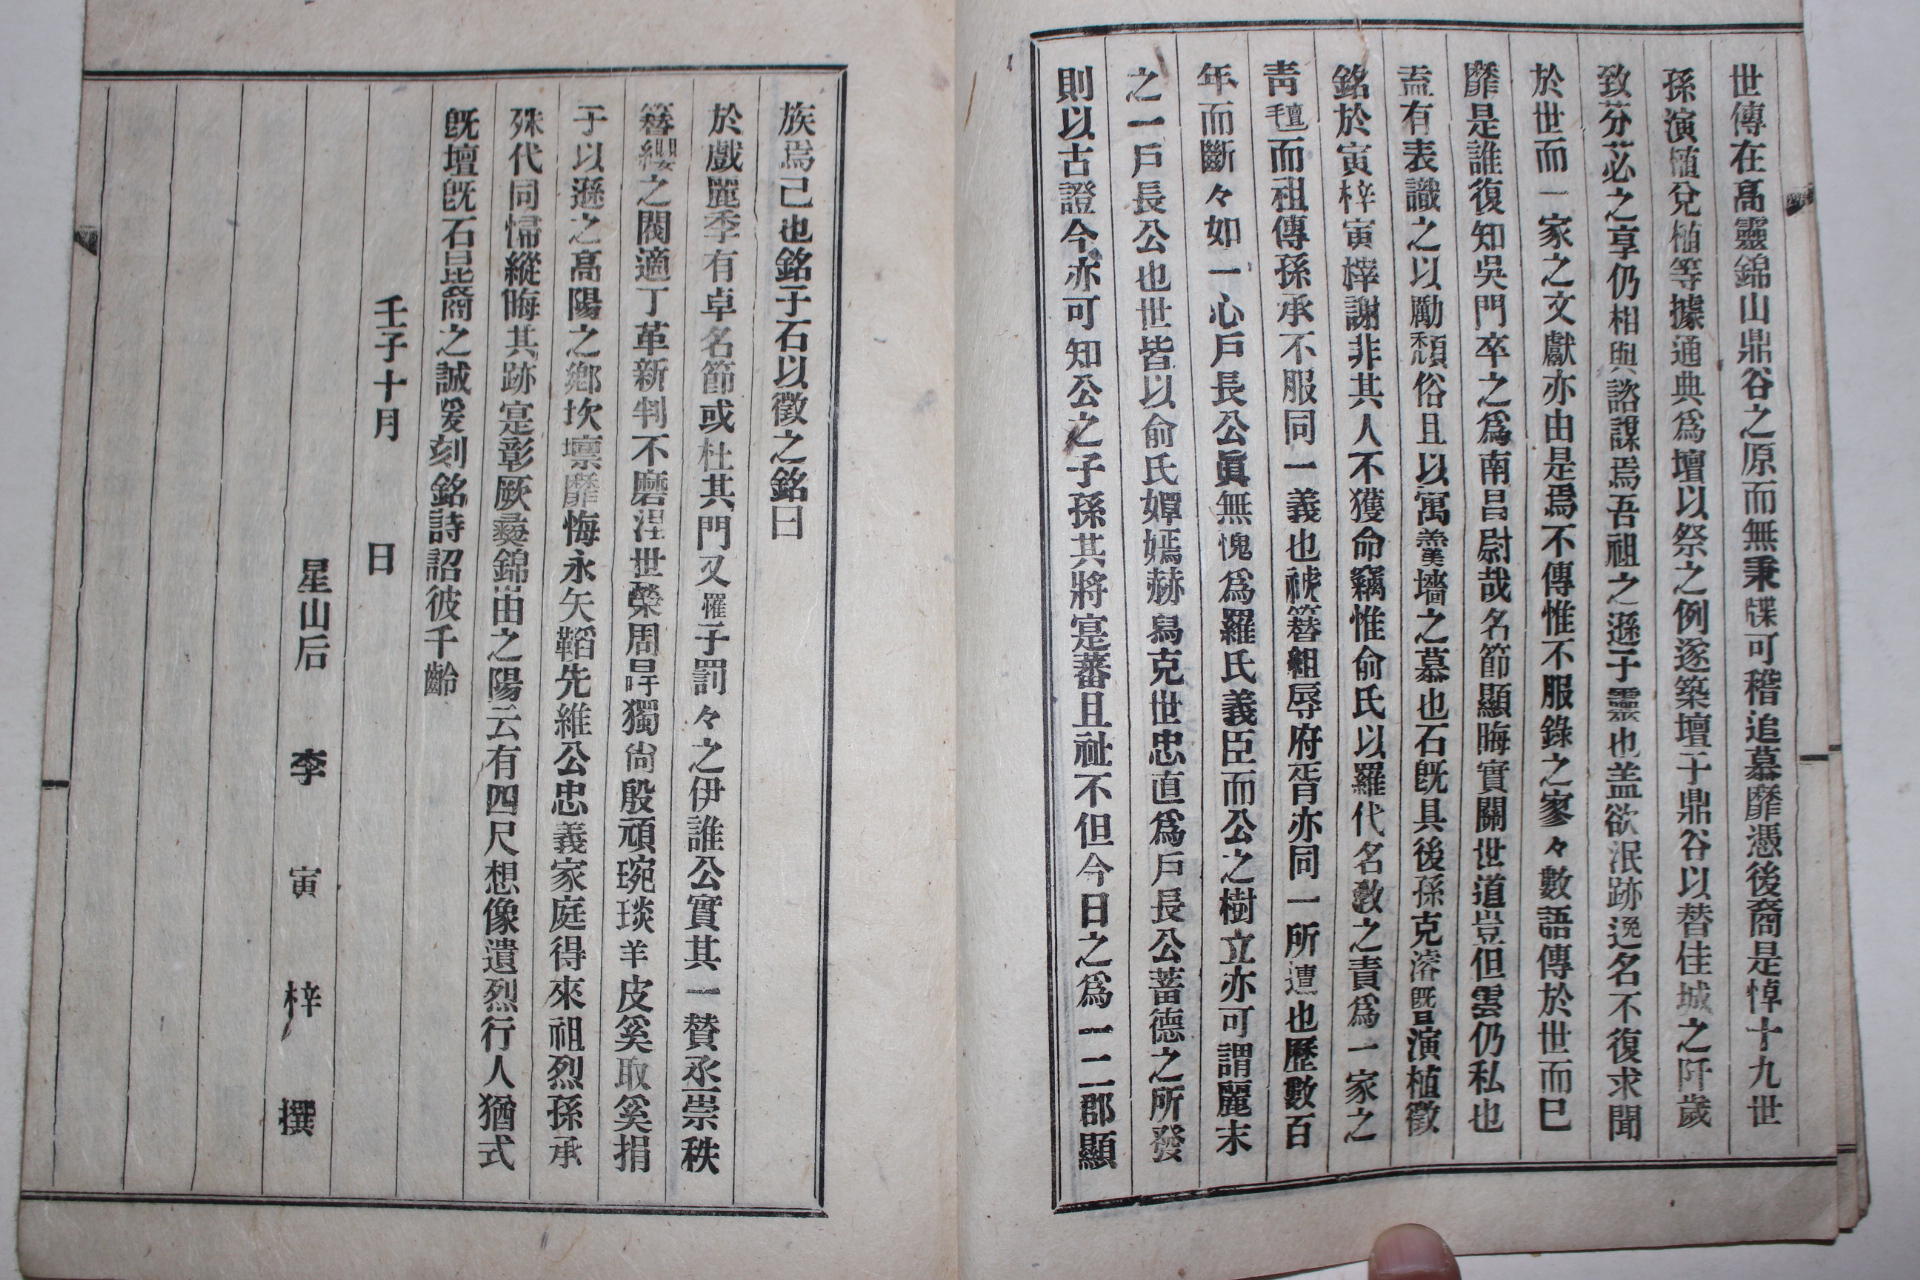 世傳在高靈錦山鼎谷之原而無秉牒可稽追慕靡憑後裔是悼十九世
孫演植兌植等據通典爲壇以祭之例遂築壇于鼎谷以替佳城之阡歲
致芬苾之享仍相與諮謀焉吾祖之遜于靈也盖欲泯跡逃名不復求聞
於世而一家之文獻亦由是焉不傳惟不服錄之寥々數語傳於世而已
靡是誰復知吳門卒之爲南昌尉哉名節顯晦實關世道豈但雲仍私也
盍有表識之以勵頹俗且以寓羹墻之慕也石旣具後孫克濬曁演植徵
銘於寅梓寅梓謝非其人不獲命竊惟俞氏以羅代名敎之責爲一家之
靑氈而祖傳孫承不服同一義也褫簪組辱府胥亦同一所遭也歷數百
年而斷々如一心戶長公眞無愧爲羅氏義臣而公之樹立亦可謂麗末
之一戶長公也世皆以俞氏嬋嫣赫舃克世忠直爲戶長公蓄德之所發
則以古證今亦可知公之子孫其將寔蕃且祉不但今日之爲一二郡顯
族焉已也銘于石以徵之銘曰
於戲麗季有卓名節或杜其門又罹于罰々之伊誰公實其一贊丞崇秩
簪纓之閥適丁革新判不磨涅世榮周冔獨尙殷頑琬琰羊皮奚取奚捐
于以遜之高陽之鄕坎壈靡悔永矢韜先維公忠義家庭得來祖烈孫承
殊代同歸縱晦其跡寔彰厥彝錦山之陽云有四尺想像遺烈行人猶式
旣壇旣石昆裔之誠爰刻銘詩詔彼千齡
壬子十月 日
星山后 李 寅 梓 撰